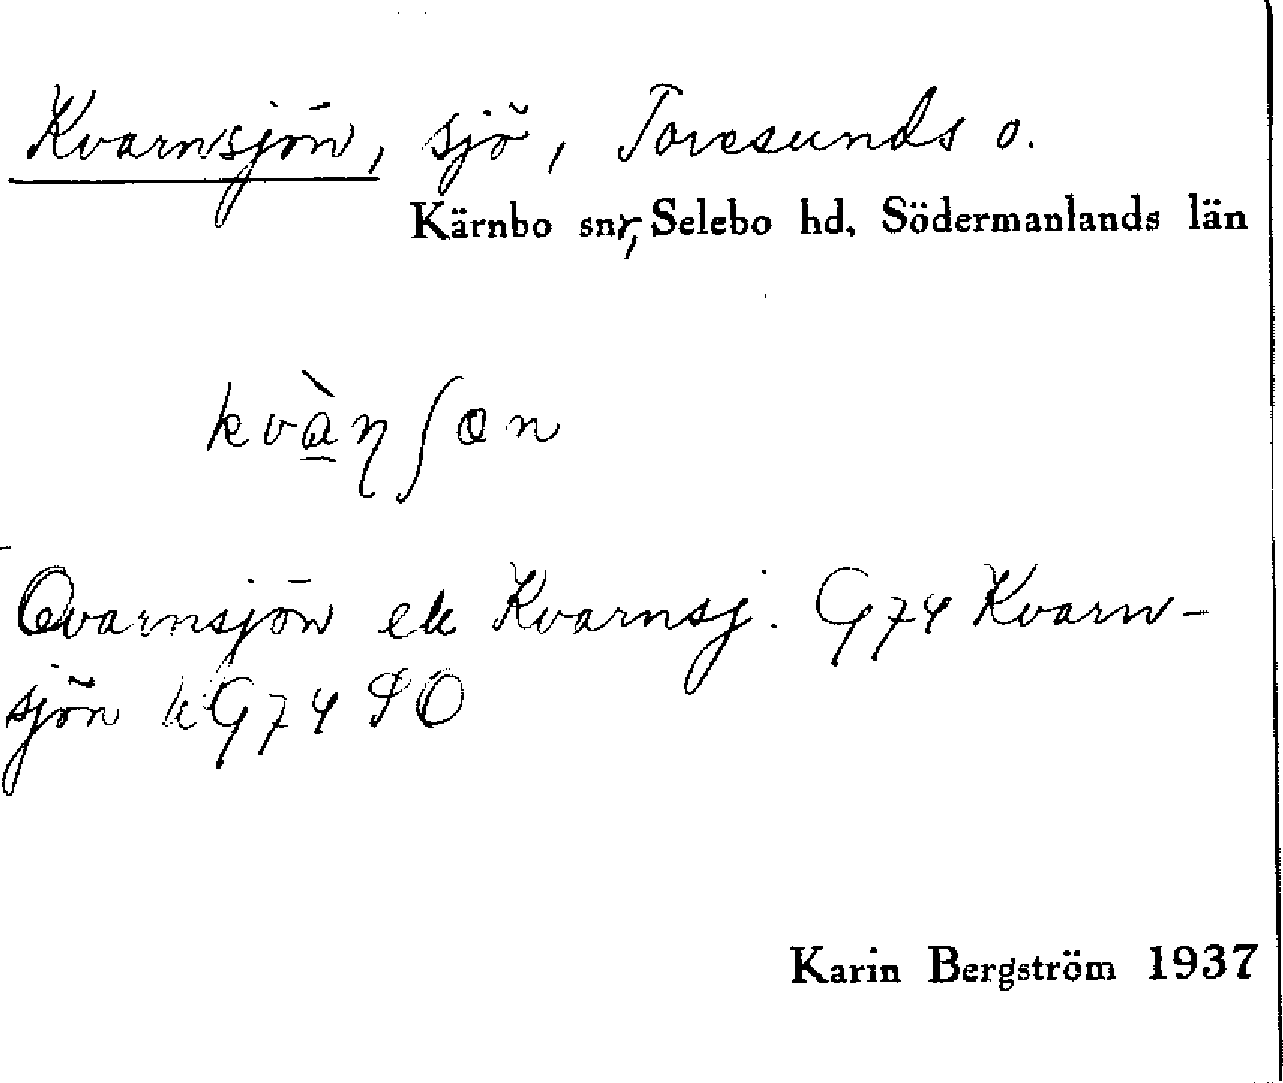 Kvarnsjön, sjö, Toresunds o.
Kärnbo snr, Selebo hd, Södermanlands län
kvàn̠ʃɵn
Qvarnsjön ek Kvarnsj. G74 Kvarn-
sjön kG74 SO
Karin Bergström 1937